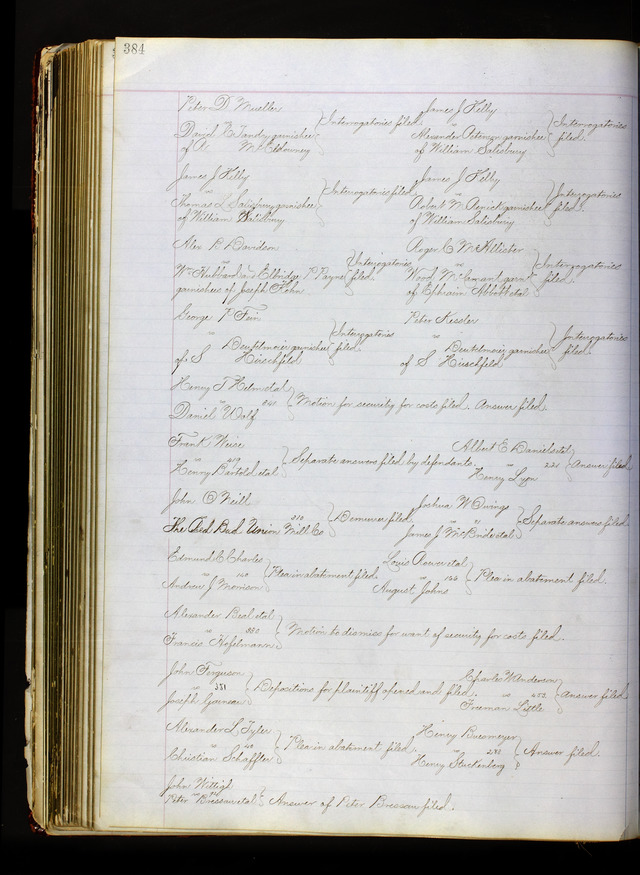 384
Peter D. Mueller
Daniel E. garnishee } Interrogatories filed.
of A. McEldowney
James J. Kelly
vs
Alexander garnishee } Interrogatories filed.
of William Salisbury
James J. Kelly
vs
Thomas L. Salisbury garnishee } Interrogatories filed
of William Salisbury
James J. Kelly
vs
Robert W. garnishee } Interrogatories filed.
of William Salisbury
Alex B. Davidson
vs
Wm Hubbard and Elbridge P. Payne } Interrogatories filed.
garnishees of Joseph Hohn
Roger C. McAllister
vs
garn } Interrogatories filed.
of Ephraim Abbott et al
George P. Fein
vs
garnishee } Interrogatories filed.
of S Hirschfeld
Peter Kessler
vs
garnishee } Interrogatories filed.
of S Hirschfeld
Henry T. et al
vs } Motion for security for costs filed. Answer filed.
Daniel Wolf
Frank Weise
vs 419 } Separate answers filed by defendants.
Henry Bartold et al
Albert E. Daniels et al
vs 221 } Answer filed
Henry Lyon
John O'Neill
vs 210 } Demurrer filed
The Union Mill Co
Joshua W. Owings
vs } Separate answers filed
James J. McBride et al
Edmund C. Charles
vs } Plea in abatement filed.
Andrew J. Morrison
Louis et al
vs 166 } Plea in abatement filed.
August Johns
Alexander Beal et al
vs 380 } Motion to dismiss for want of security for costs filed.
Francis Hofelmann
John Ferguson
vs 351 } Depositions for plaintiff opened and filed.
Joseph Garneau
Charles W. Anderson
vs 452 } Answer filed
Freeman Little
Alexander L. Tyler
vs } Plea in abatement filed.
Christian Schaffter
Henry Buemeyer
vs } Answer filed.
Henry Stuckenberg
John Willigh
vs
Peter Bressan et al } Answer of Peter Bressan filed.